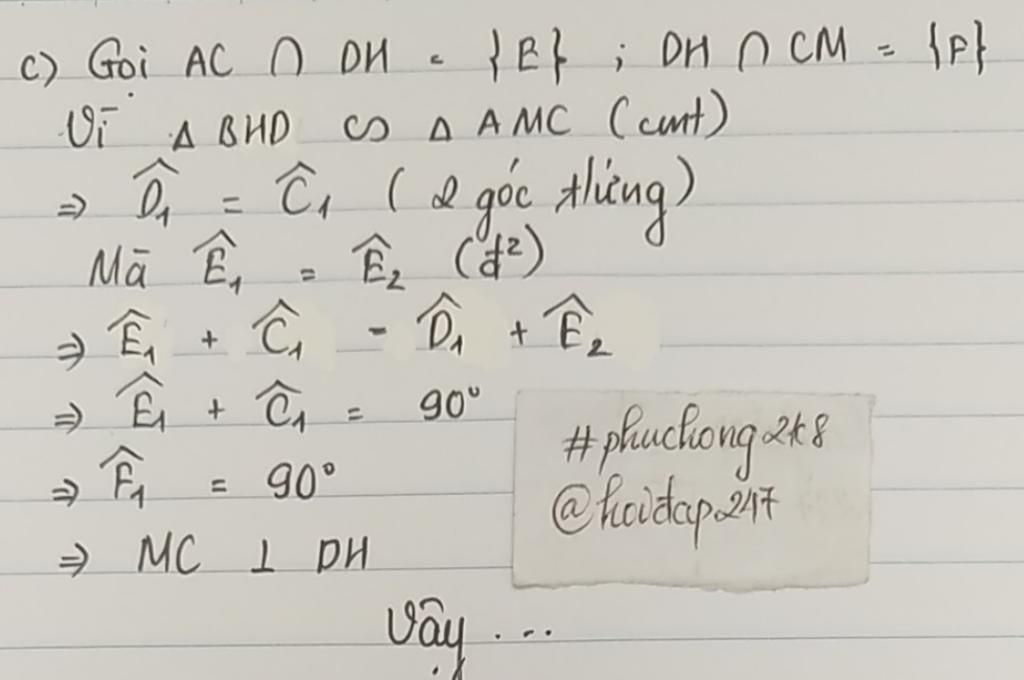 c) Gọi AC ∩ DH = {E} ; DH ∩ CM = {F}
Vì Δ BHD ∽ Δ AMC (cmt)
⇒ D̂₁ = Ĉ₁ (2 góc t/ứng)
Mà Ê₁ = Ê₂ (đ²)
⇒ Ê₁ + Ĉ₁ = D̂₁ + Ê₂
⇒ Ê₁ + Ĉ₁ = 90°
⇒ F̂₁ = 90°
⇒ MC ⊥ DH
Vậy ...
#phuchong2k8
@hoidap247